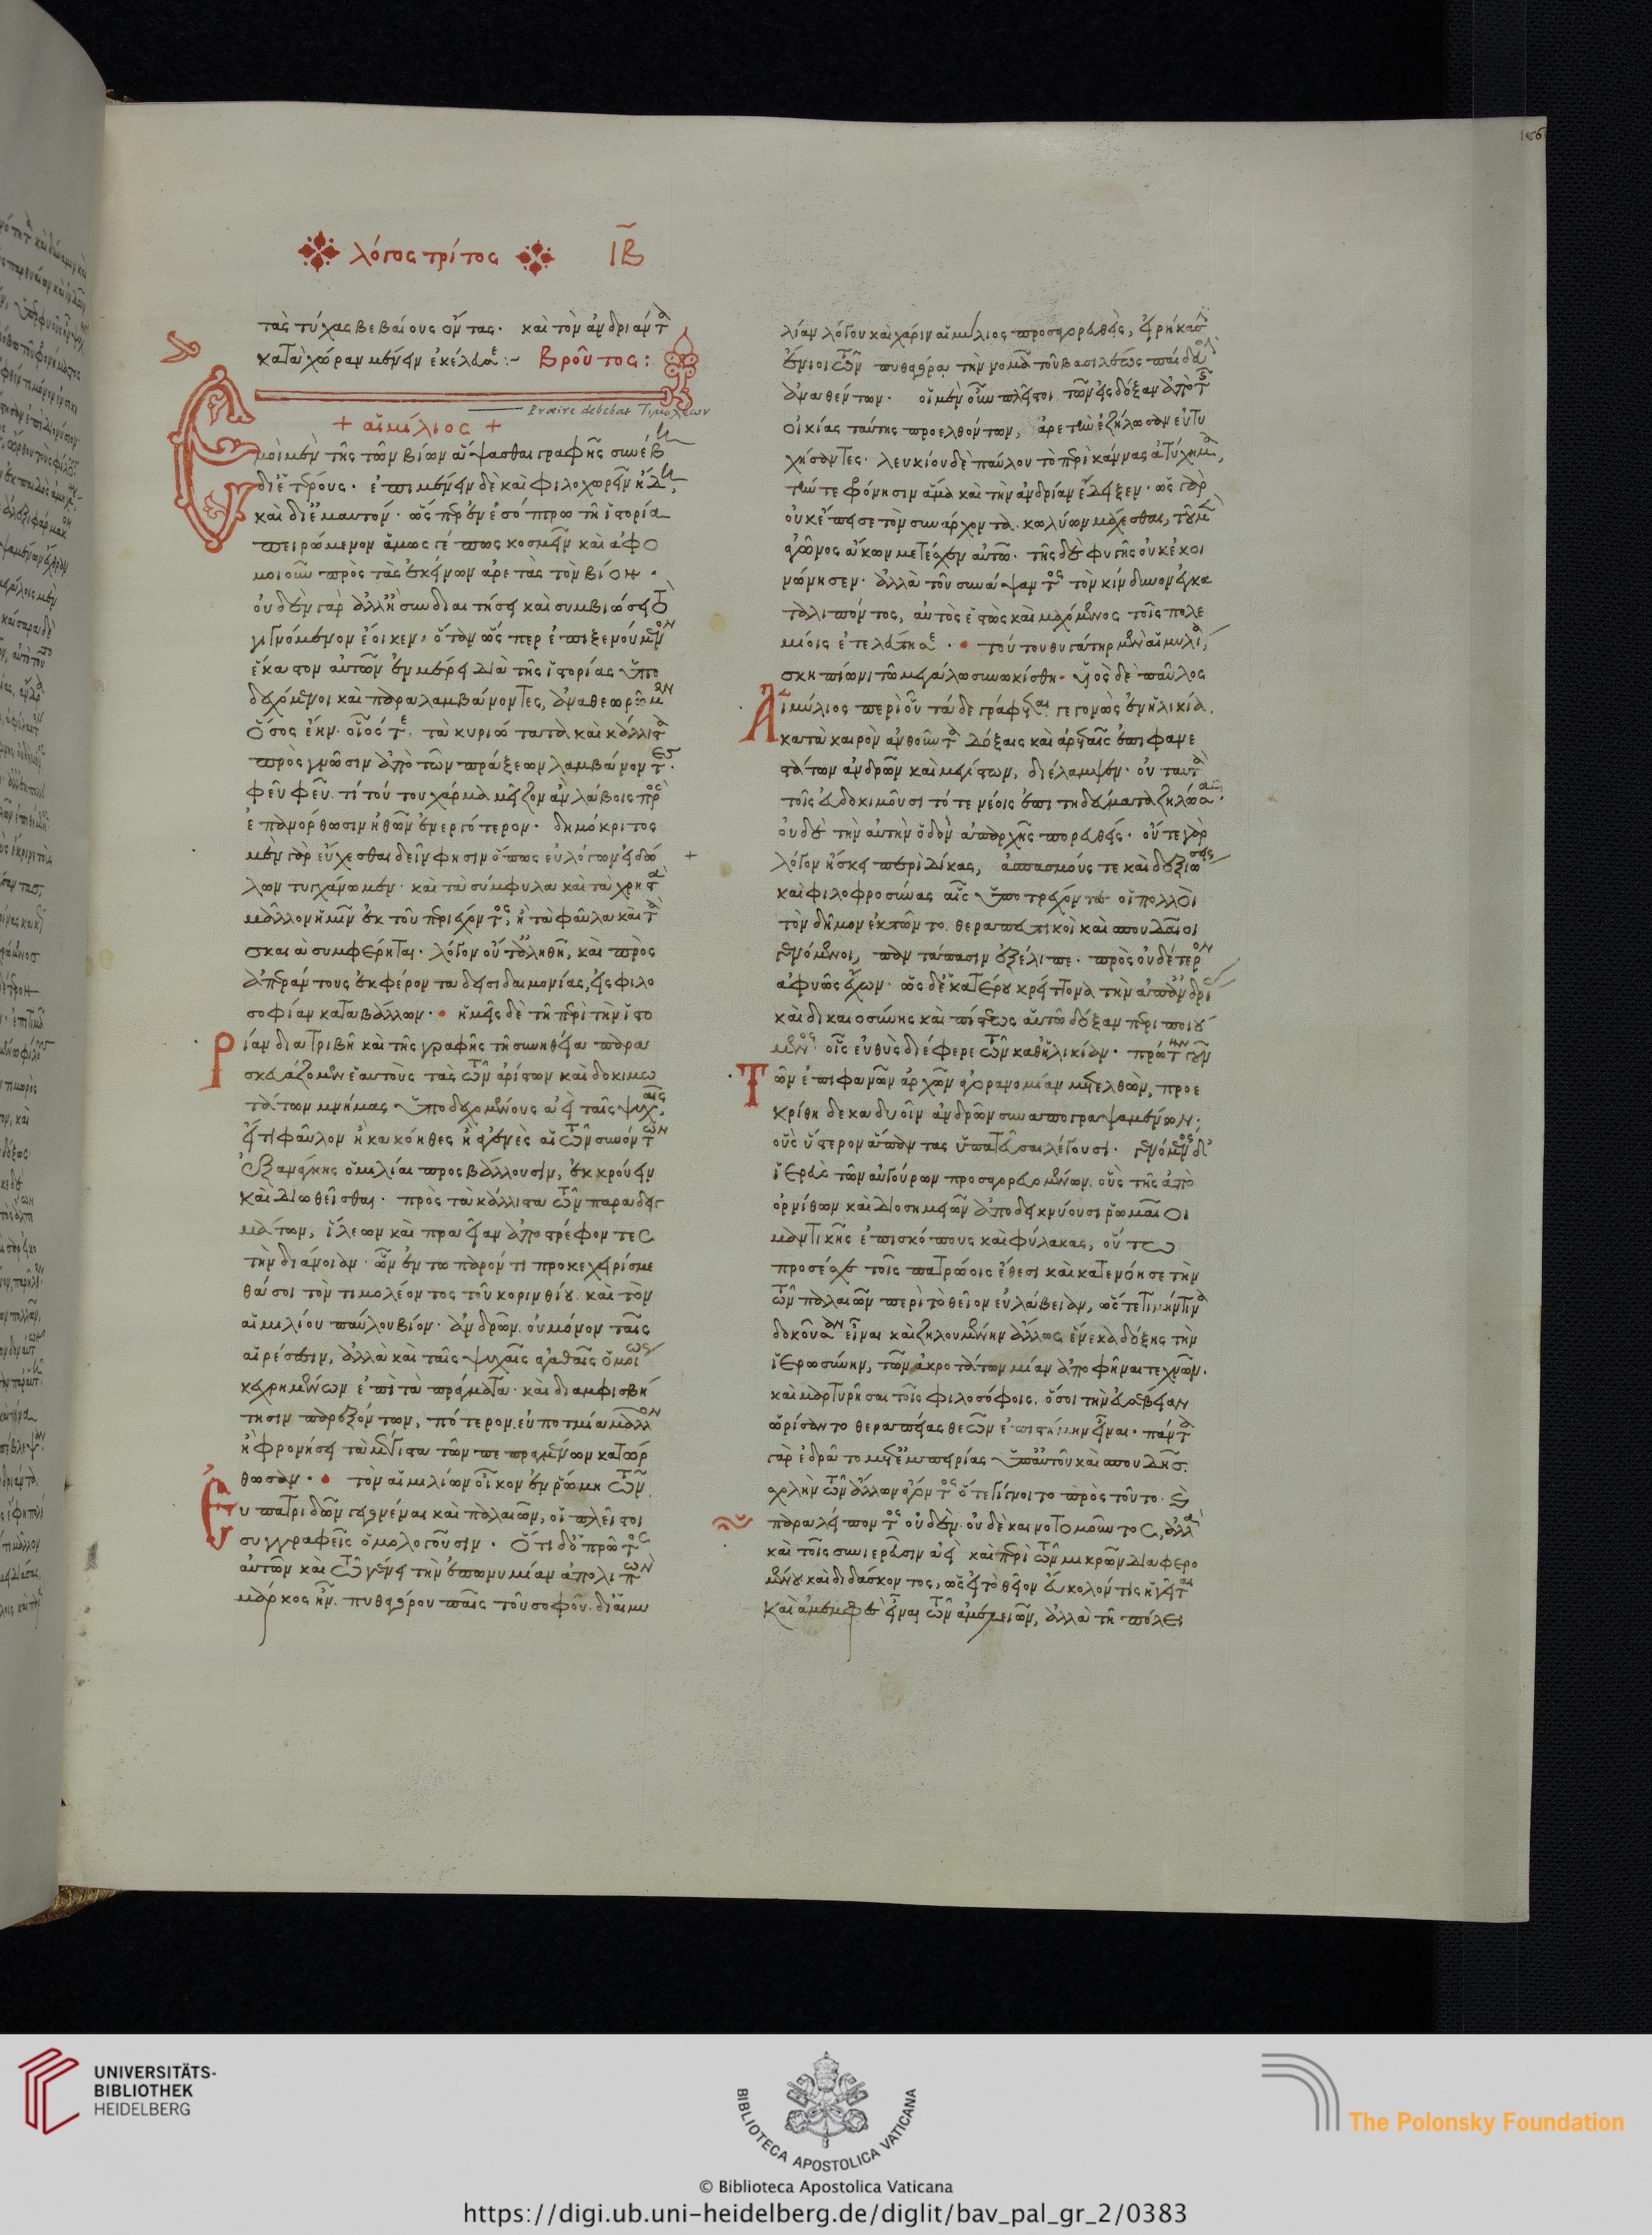 λόγος τρίτος ΙΒ
τὰς τύχας βεβαίους ὄντας· καὶ τὸν ἀνδριάντα
κατὰ χώραν μένειν ἐκέλευσε :~ Βροῦτος :
Praeire debebat Τιμολέων
+ αἰμίλιος +
Ἐμοὶ μὲν τῆς τῶν βίων ἅψασθαι γραφῆς συνέβη
δι' ἑτέρους· ἐπιμένειν δὲ καὶ φιλοχωρεῖν ἤδη,
καὶ δι' ἐμαυτόν· ὥσπερ ἐν ἐσόπτρω τῆ ἱστορία
πειρώμενον ἅμως γέ πως κοσμεῖν καὶ ἀφο
μοιοῦν πρὸς τὰς ἐκείνων ἀρετὰς τὸν βίον·
οὐδὲν γὰρ ἀλλ' ἢ συνδιαιτήσει καὶ συμβιώσει τὸ
γιγνόμενον ἔοικεν, ὅταν ὥσπερ ἐπιξενούμενον
ἕκαστον αὐτῶν ἐν μέρει διὰ τῆς ἱστορίας ὑπο
δεχόμενοι καὶ παραλαμβάνοντες, ἀναθεωρῶμεν
ὅσος ἔην οἷός τε. τὰ κυριώτατα καὶ κάλλιστα
πρὸς γνῶσιν ἀπὸ τῶν πράξεων λαμβάνοντες.
φεῦ φεῦ τί τούτου χάρμα μεῖζον ἂν λάβοις πρὸς
ἐπανόρθωσιν ἠθῶν ἐνεργότερον· δημόκριτος
μὲν γὰρ εὔχεσθαι δεῖν φησιν ὅπως εὐλόγων εἰδώ
λων τυγχάνωμεν· καὶ τὰ σύμφυλα καὶ τὰ χρηστὰ
μᾶλλον ἡμῖν ἐκ τοῦ περιέχοντος, ἢ τὰ φαῦλα καὶ τὰ
σκαιὰ συμφέρηται· λόγον οὔτ' ἀληθῆ, καὶ πρὸς
ἀπεράντους ἐκφέροντα δεισιδαιμονίας, εἰς φιλο
σοφίαν καταβάλλων· ἡμεῖς δὲ τῆ περὶ τὴν ἱστο
ρίαν διατριβῆ καὶ τῆς γραφῆς τῆ συνηθεία παρα
σκευάζομεν ἑαυτοὺς τὰς τῶν ἀρίστων καὶ δοκιμω
τάτων μνήμας ὑποδεχομένους ἀεὶ ταῖς ψυχαῖς,
εἴ τι φαῦλον ἢ κακόηθες ἢ ἀγενὲς αἱ τῶν συνόντων
ἐξ ἀνάγκης ὁμιλίαι προσβάλλουσιν, ἐκκρούειν
καὶ διωθεῖσθαι· πρὸς τὰ κάλλιστα τῶν παραδειγ
μάτων, ἵλεων καὶ πραεῖαν ἀποστρέφοντες
τὴν διάνοιαν· ὧν ἐν τῶ παρόντι προκεχειρίσμε
θά σοι τὸν τιμολέοντος τοῦ κορινθίου καὶ τὸν
αἰμιλίου παύλου βίον· ἀνδρῶν οὐ μόνον ταῖς
αἱρέσεσιν, ἀλλὰ καὶ ταῖς ψυχαῖς ἀγαθαῖς ὁμοίως
κεχρημένων ἐπὶ τὰ πράγματα· καὶ διαμφισβή
τησιν παρεξόντων, πότερον εὐποτμία μᾶλλον
ἢ φρονήσει τὰ μέγιστα τῶν πεπραγμένων κατώρ
θωσαν· τὸν αἰμιλίων οἶκον ἐν ῥώμη τῶν
εὐπατριδῶν γεγονέναι καὶ παλαιῶν, οἱ πλεῖστοι
συγγραφεῖς ὁμολογοῦσιν· ὅτι δ' ὁ πρῶτος
αὐτῶν καὶ τῶ γένει τὴν ἐπωνυμίαν ἀπολιπὼν
μάρκος ἦν. πυθαγόρου παῖς τοῦ σοφοῦ. δι' αἱμυ
λίαν λόγου καὶ χάριν αἰμίλιος προσαγορευθεὶς, εἰρήκασιν
ἔνιοι τῶν πυθαγόρα τὴν νομᾶ τοῦ βασιλέως παίδευσιν
ἀναθέντων. οἱ μὲν οὖν πλεῖστοι τῶν εἰς δόξαν ἀπὸ τῆς
οἰκίας ταύτης προελθόντων, ἀρετὴν ἐζήλωσαν εὐτυ
χήσαντες. λευκίου δὲ παύλου τὸ περὶ κάννας ἀτύχημα,
τήν τε φρόνησιν ἅμα καὶ τὴν ἀνδρίαν ἔδειξεν· ὡς γὰρ
οὐκ ἔπεισε τὸν συνάρχοντα κωλύων μάχεσθαι, τοῦ μὲν
ἀγῶνος ἄκων μετέσχεν αὐτῶ· τῆς δὲ φυγῆς οὐκ ἐκοι
νώνησεν· ἀλλὰ τοῦ συνάψαντος τὸν κίνδυνον ἐγκα
ταλιπόντος, αὐτὸς ἑστὼς καὶ μαχόμενος τοῖς πολε
μίοις ἐτελεύτησε· τούτου θυγάτηρ μὲν αἰμιλία,
σκηπίωνι τῶ μεγάλω συνωκίσθη· υἱὸς δὲ παῦλος
Αἰμύλιος περὶ οὗ τάδε γράφεται. γεγονὼς ἐν ἡλικία
κατὰ καιρὸν ἀνθοῦντα δόξαις καὶ ἀρεταῖς ἐπιφανε
στάτων ἀνδρῶν καὶ μεγίστων, διέλαμψεν· οὐ ταυτὰ
τοῖς εὐδοκιμοῦσι τότε νέοις ἐπιτηδεύματα ζηλώσας·
οὐδὲ τὴν αὐτὴν ὁδὸν ἀπαρχῆς πορευθείς· οὔτε γὰρ
λόγον ἤσκει περὶ δίκας, ἀσπασμούς τε καὶ δεξιώσεις
καὶ φιλοφροσύνας αἷς ὑποτρέχοντες οἱ πολλοὶ
τὸν δῆμον ἐκτῶντο. θεραπευτικοὶ καὶ σπουδαῖοι
γενόμενοι, παντάπασιν ἐξέλιπε· πρὸς οὐδέτερον
ἀφυῶς ἔχων· ὡς δ' ἑκατέρου κρείττονα τὴν ἀπ' ἀνδρείας
καὶ δικαιοσύνης καὶ πίστεως αὑτῶ δόξαν περιποιού
μενος· οἷς εὐθὺς διέφερε τῶν καθ' ἡλικίαν· πρώτην γοῦν
Τῶν ἐπιφανῶν ἀρχῶν ἀγορανομίαν μετελθὼν, προε
κρίθη δεκαδυοῖν ἀνδρῶν συναπογραψαμένων·
οὓς ὕστερον ἅπαντας ὑπατεῦσαι λέγουσι. γενόμενος δ'
ἱερεὺς τῶν αὐγούρων προσαγορευομένων, οὓς τῆς ἀπὸ
ὀρνίθων καὶ διοσημειῶν ἀποδεικνύουσι ῥωμαῖοι
μαντικῆς ἐπισκόπους καὶ φύλακας, οὕτω
προσέσχε τοῖς πατρώοις ἔθεσι καὶ κατενόησε τὴν
τῶν παλαιῶν περὶ τὸ θεῖον εὐλάβειαν, ὥστε τιμήν τινα
δοκοῦσαν εἶναι καὶ ζηλουμένην ἄλλως ἕνεκα δόξης τὴν
ἱερωσύνην, τῶν ἀκροτάτων μίαν ἀποφῆναι τεχνῶν.
καὶ μαρτυρῆσαι τοῖς φιλοσόφοις, ὅσοι τὴν εὐσέβειαν
ὡρίσαντο θεραπείας θεῶν ἐπιστήμην εἶναι· πάντα
γὰρ ἐδρᾶτο μετ' ἐμπειρίας ὑπ' αὐτοῦ καὶ σπουδῆς.
σχολὴν τῶν ἄλλων ἄγοντος ὅτε γίγνοιτο πρὸς τοῦτο. καὶ
παραλείποντος οὐδὲν οὐδὲ καινοτομοῦντος, ἀλλὰ
καὶ τοῖς συνιερεῦσιν ἀεὶ καὶ περὶ τῶν μικρῶν διαφερο
μένου καὶ διδάσκοντος, ὡς εἰ τὸ θεῖον εὔκολόν τις ἡγεῖται
καὶ ἀμεμφὲς εἶναι τῶν ἀμελειῶν, ἀλλὰ τῆ πόλει
UNIVERSITÄTS-
BIBLIOTHEK
HEIDELBERG
BIBLIOTECA APOSTOLICA VATICANA
The Polonsky Foundation
© Biblioteca Apostolica Vaticana
https://digi.ub.uni-heidelberg.de/diglit/bav_pal_gr_2/0383